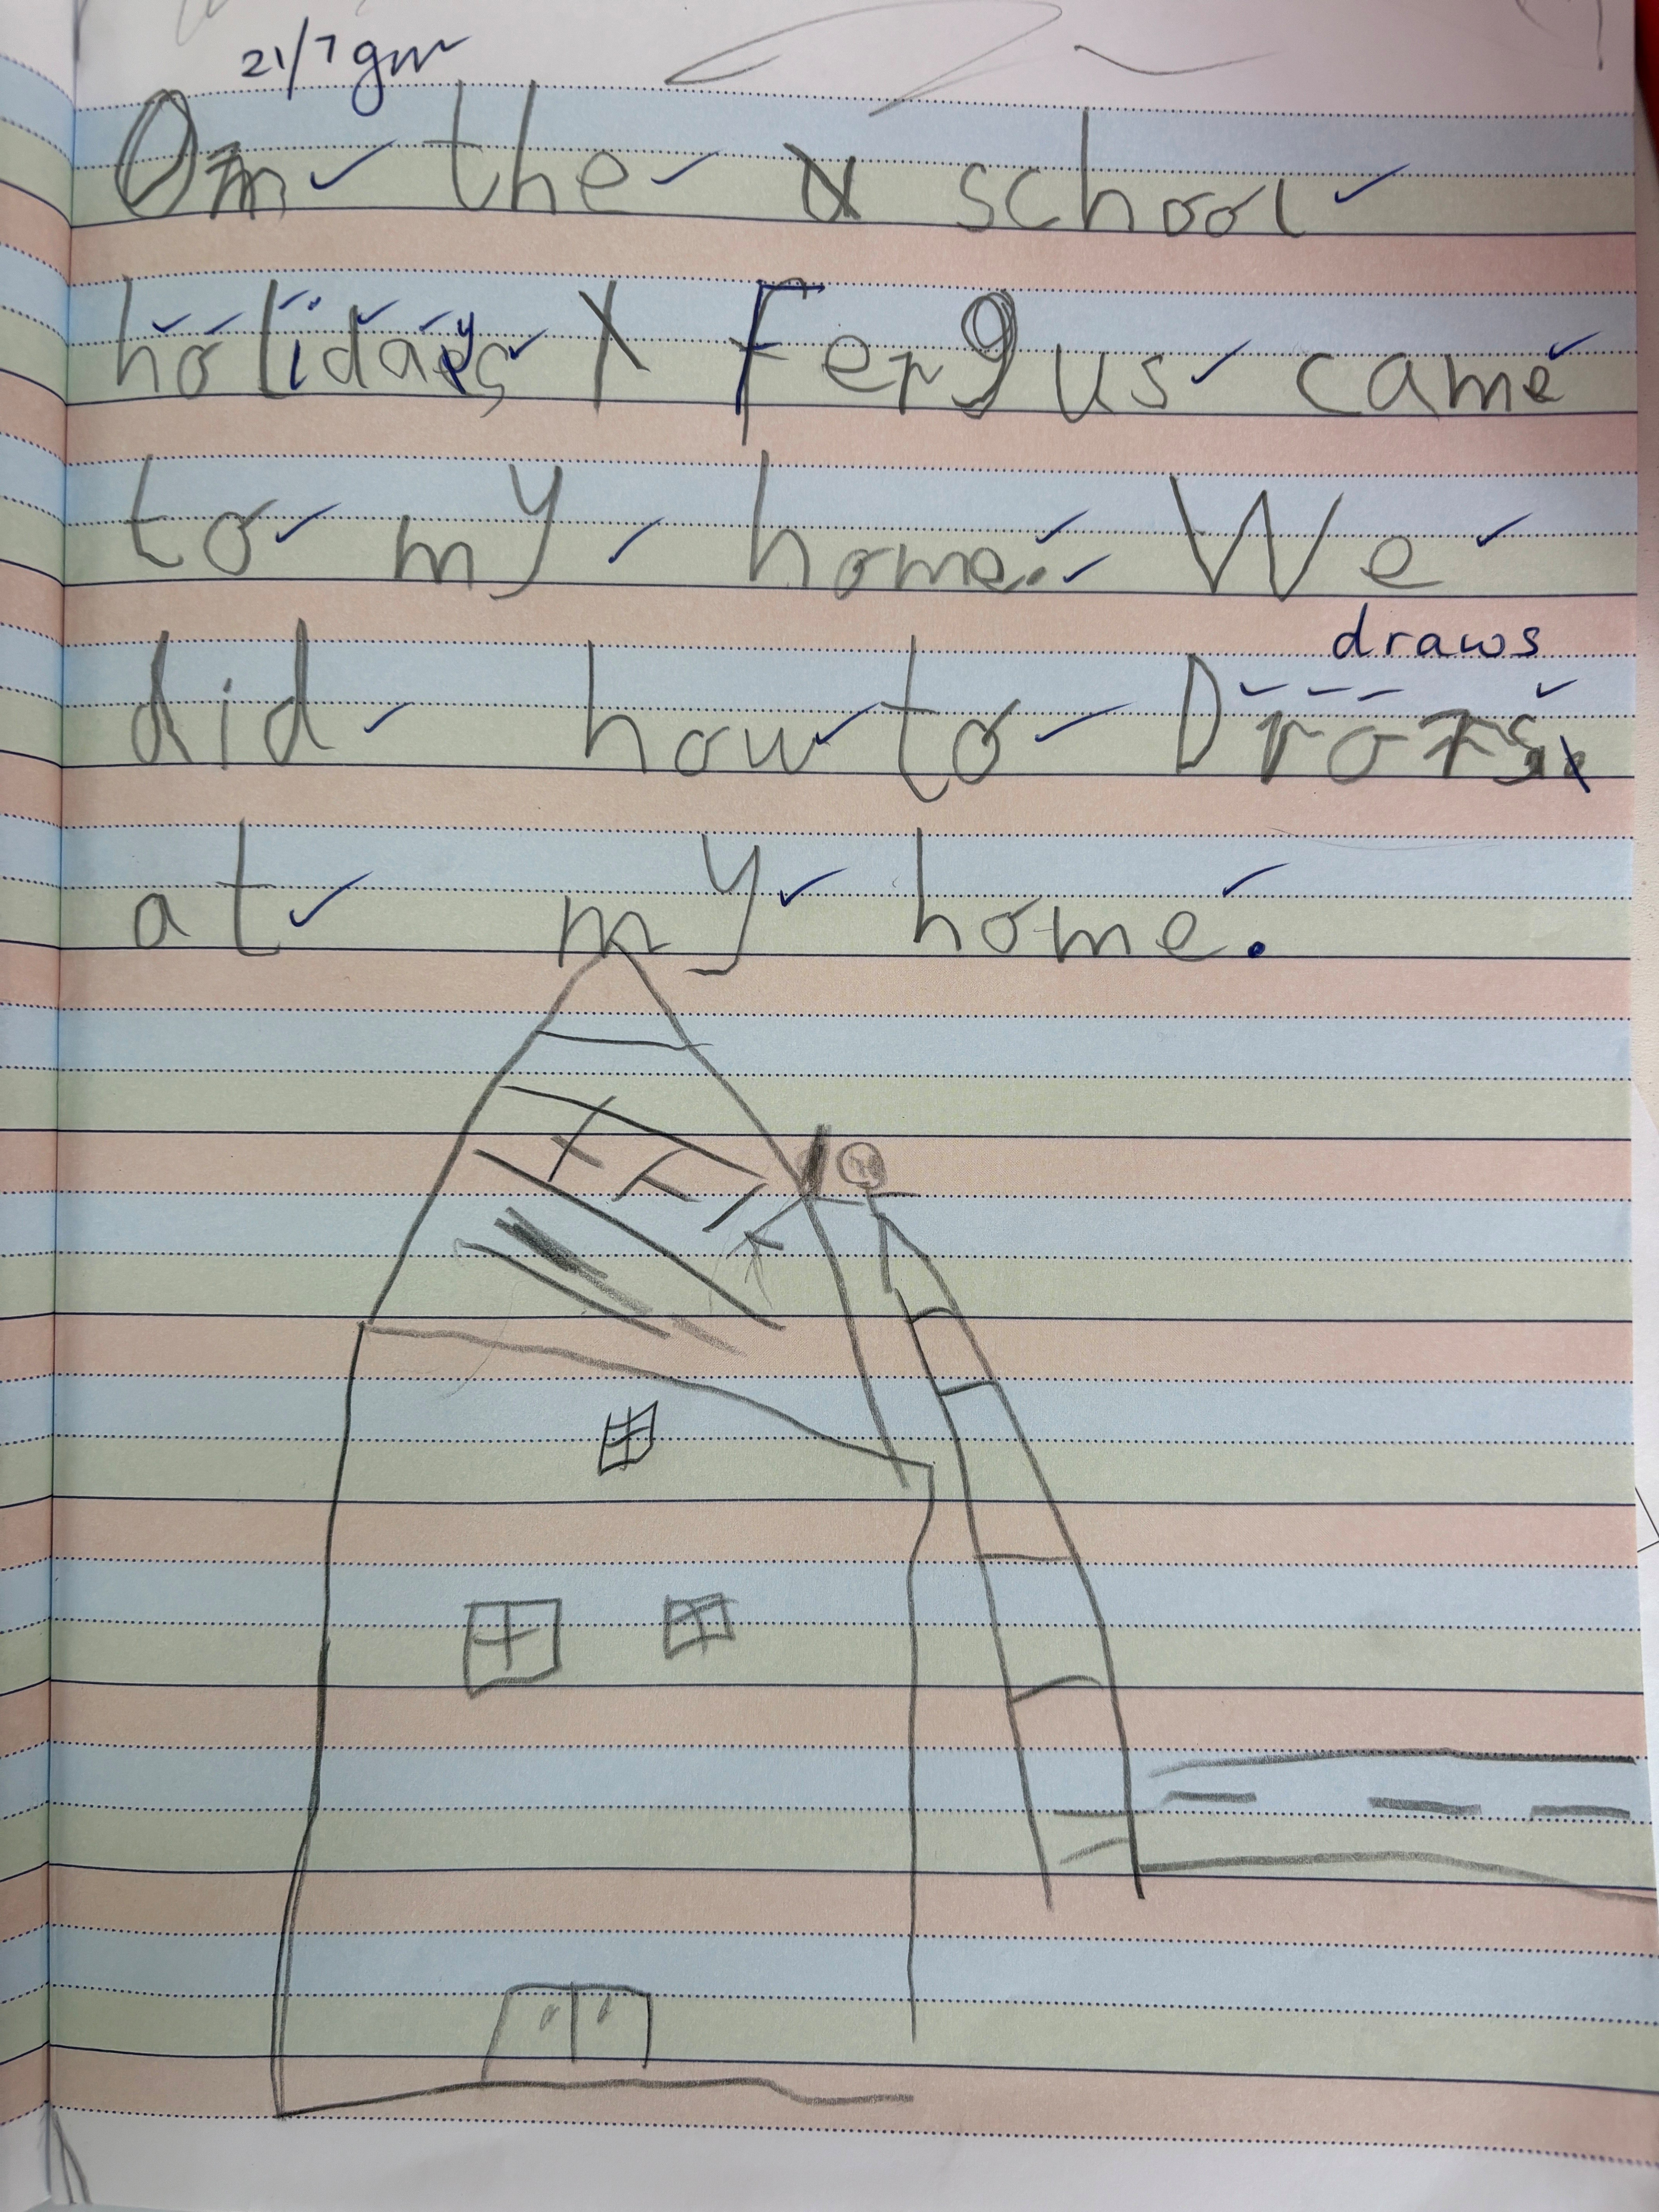 21/7 gw
On the school
holidays Fergus came
to my home. We
draws
did how to Drors.
at my home.